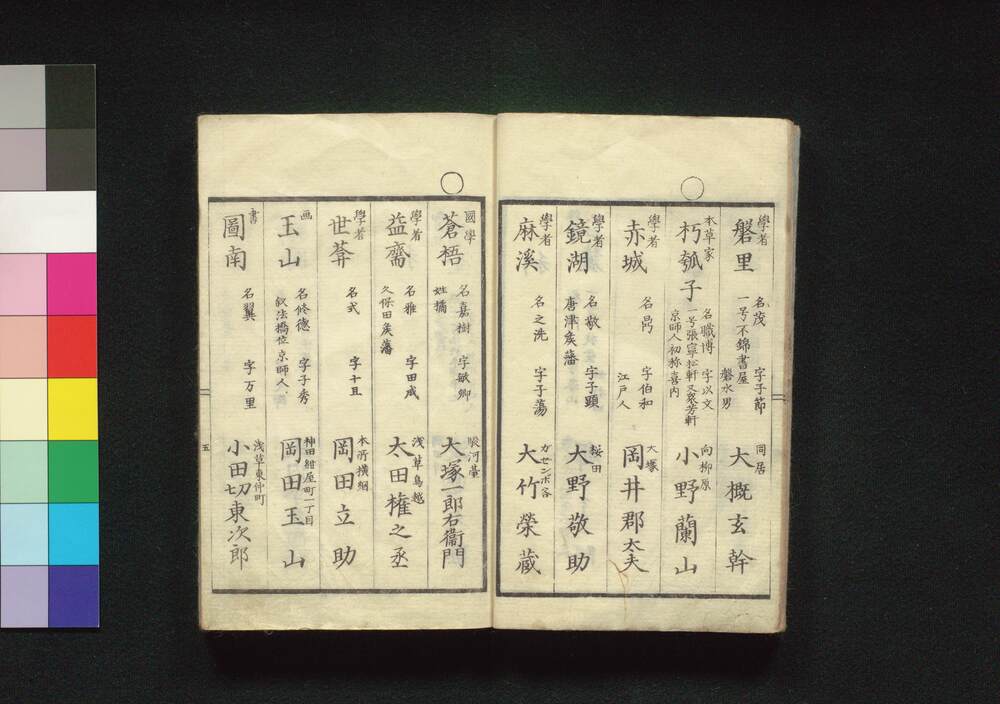 學者
磐里
名茂 字子節
一号不錦書屋
磐水男
同居
大槪玄幹
本草家
朽瓠子
名職博 字以文
一号張寧松軒又衆芳軒
京師人初称喜内
向柳原
小野蘭山
學者
赤城
名昺 字伯和
江戸人
大塚
岡井郡太夫
學者
鏡湖
名敬 字子顕
唐津矦藩
桜田
大野敬助
學者
麻溪
名之浩 字子蕩
大竹榮蔵
國學
蒼梧
名嘉樹 字敏卿
姓橘
駿河臺
大塚一郎右衞門
學者
益齋
名雅 字田成
久保田矦藩
浅草鳥越
太田権之丞
學者
世華
名弌 字十且
本所横網
岡田立助
画
玉山
名修德 字子秀
叙法橋位 京師人
神田紺屋町一丁目
岡田玉山
書
圖南
名翼 字万里
浅草東仲町
小田切東次郎
五